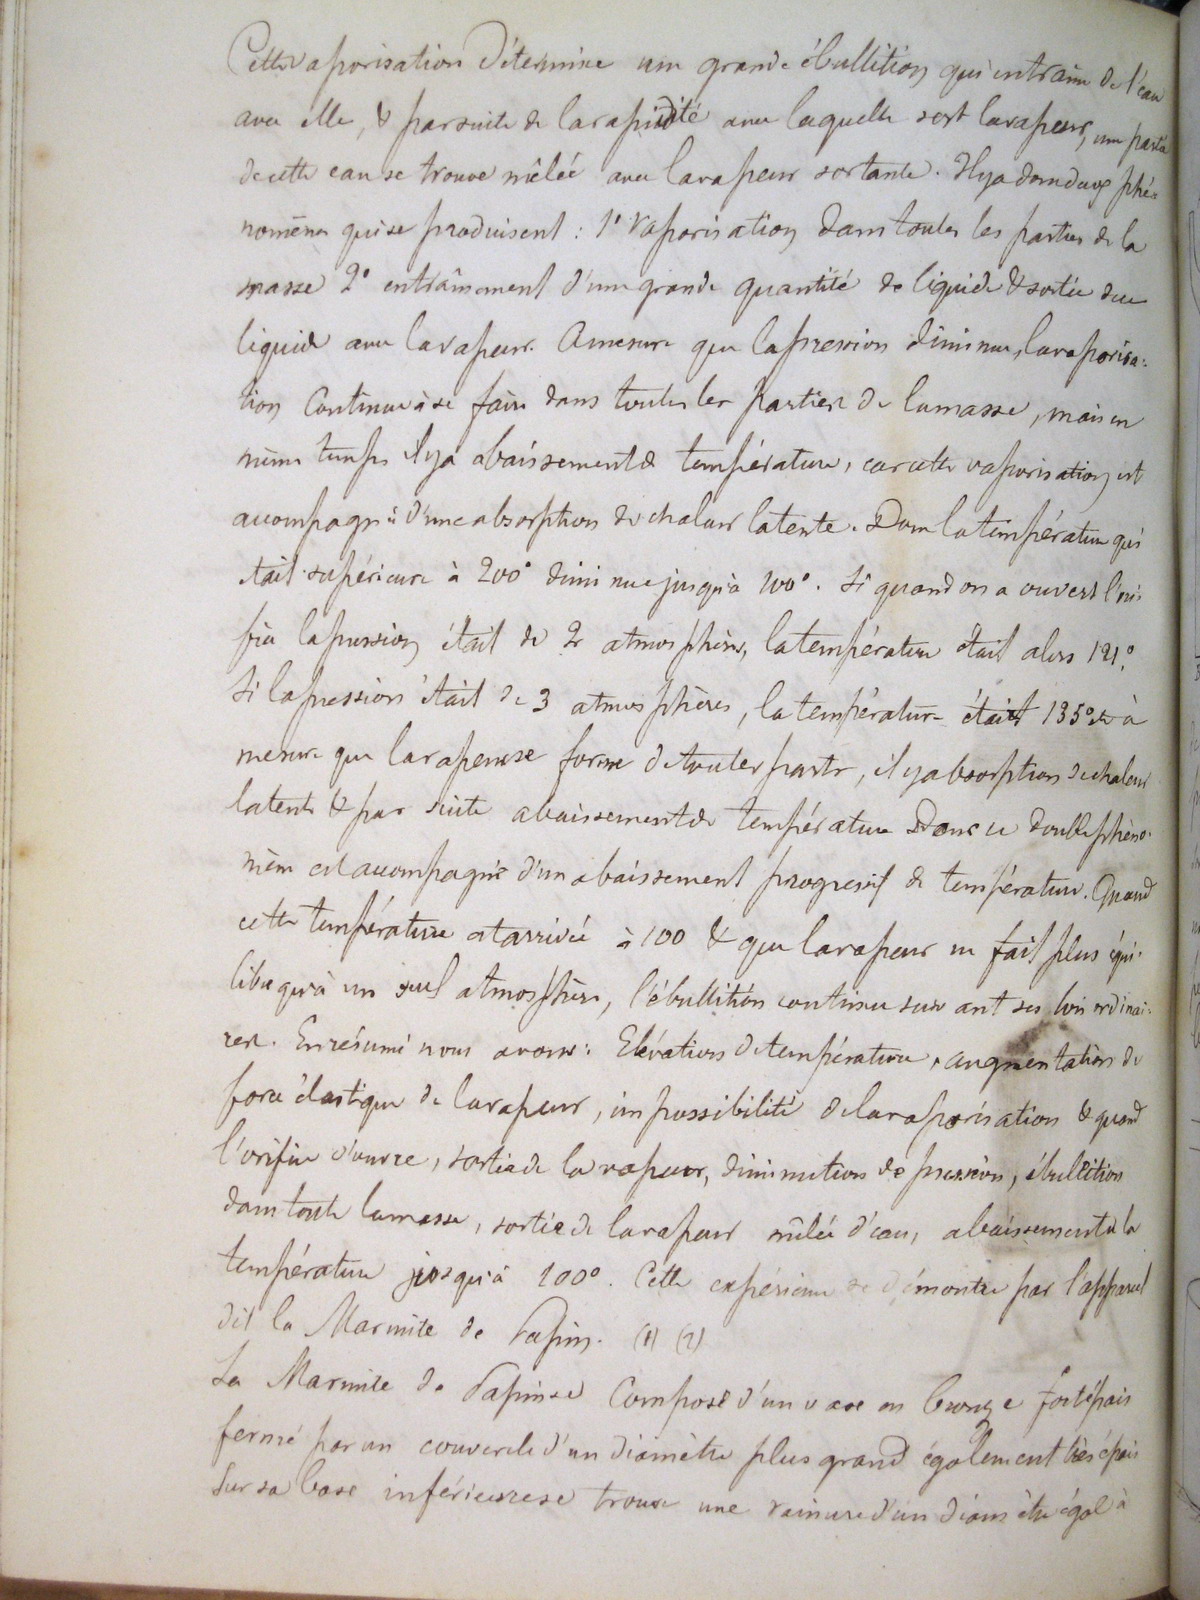 Cette vaporisation détermine une grande ébullition qui entraîne de l'eau
avec elle, & par suite de la rapidité avec laquelle sort la vapeur, une partie
de cette eau se trouve mêlée avec la vapeur sortante. Il y a donc deux phé-
nomènes qui se produisent : 1° Vaporisation dans toutes les parties de la
masse 2° entraînement d'une grande quantité de liquide & sortie du
liquide avec la vapeur. A mesure que la pression diminue, la vaporisa-
tion continue à se faire dans toutes les parties de la masse, mais en
même temps il y a abaissement de température, car cette vaporisation est
accompagnée d'une absorption de chaleur latente. Donc la température qui
était supérieure à 200° diminue jusqu'à 100°. Si quand on a ouvert l'ori-
fice la pression était de 2 atmosphères, la température était alors 121°.
Si la pression était de 3 atmosphères, la température était 135° & à
mesure que la vapeur se forme de toutes parts, il y a absorption de chaleur
latente & par suite abaissement de température Donc ce double phéno-
mène est accompagné d'un abaissement progressif de température. Quand
cette température est arrivée à 100 & que la vapeur ne fait plus équi-
libre qu'à une seul atmosphère, l'ébullition continue suivant ses lois ordinai-
res. En résumé nous avons : Elévation de température, augmentation de
force élastique de la vapeur, impossibilité de la vaporisation & quand
l'orifice s'ouvre, sortie de la vapeur, diminution de pression, ébullition
dans toute la masse, sortie de la vapeur mêlée d'eau, abaissement de la
température jusqu'à 100°. Cette expérience se démontre par l'appareil
dit la Marmite de Papin. (1) (2)
La Marmite de Papin se compose d'un vase en bronze fort épais
fermé par un couvercle d'un diamètre plus grand également très épais
Sur sa base inférieure se trouve une rainure d'un diamètre égal à